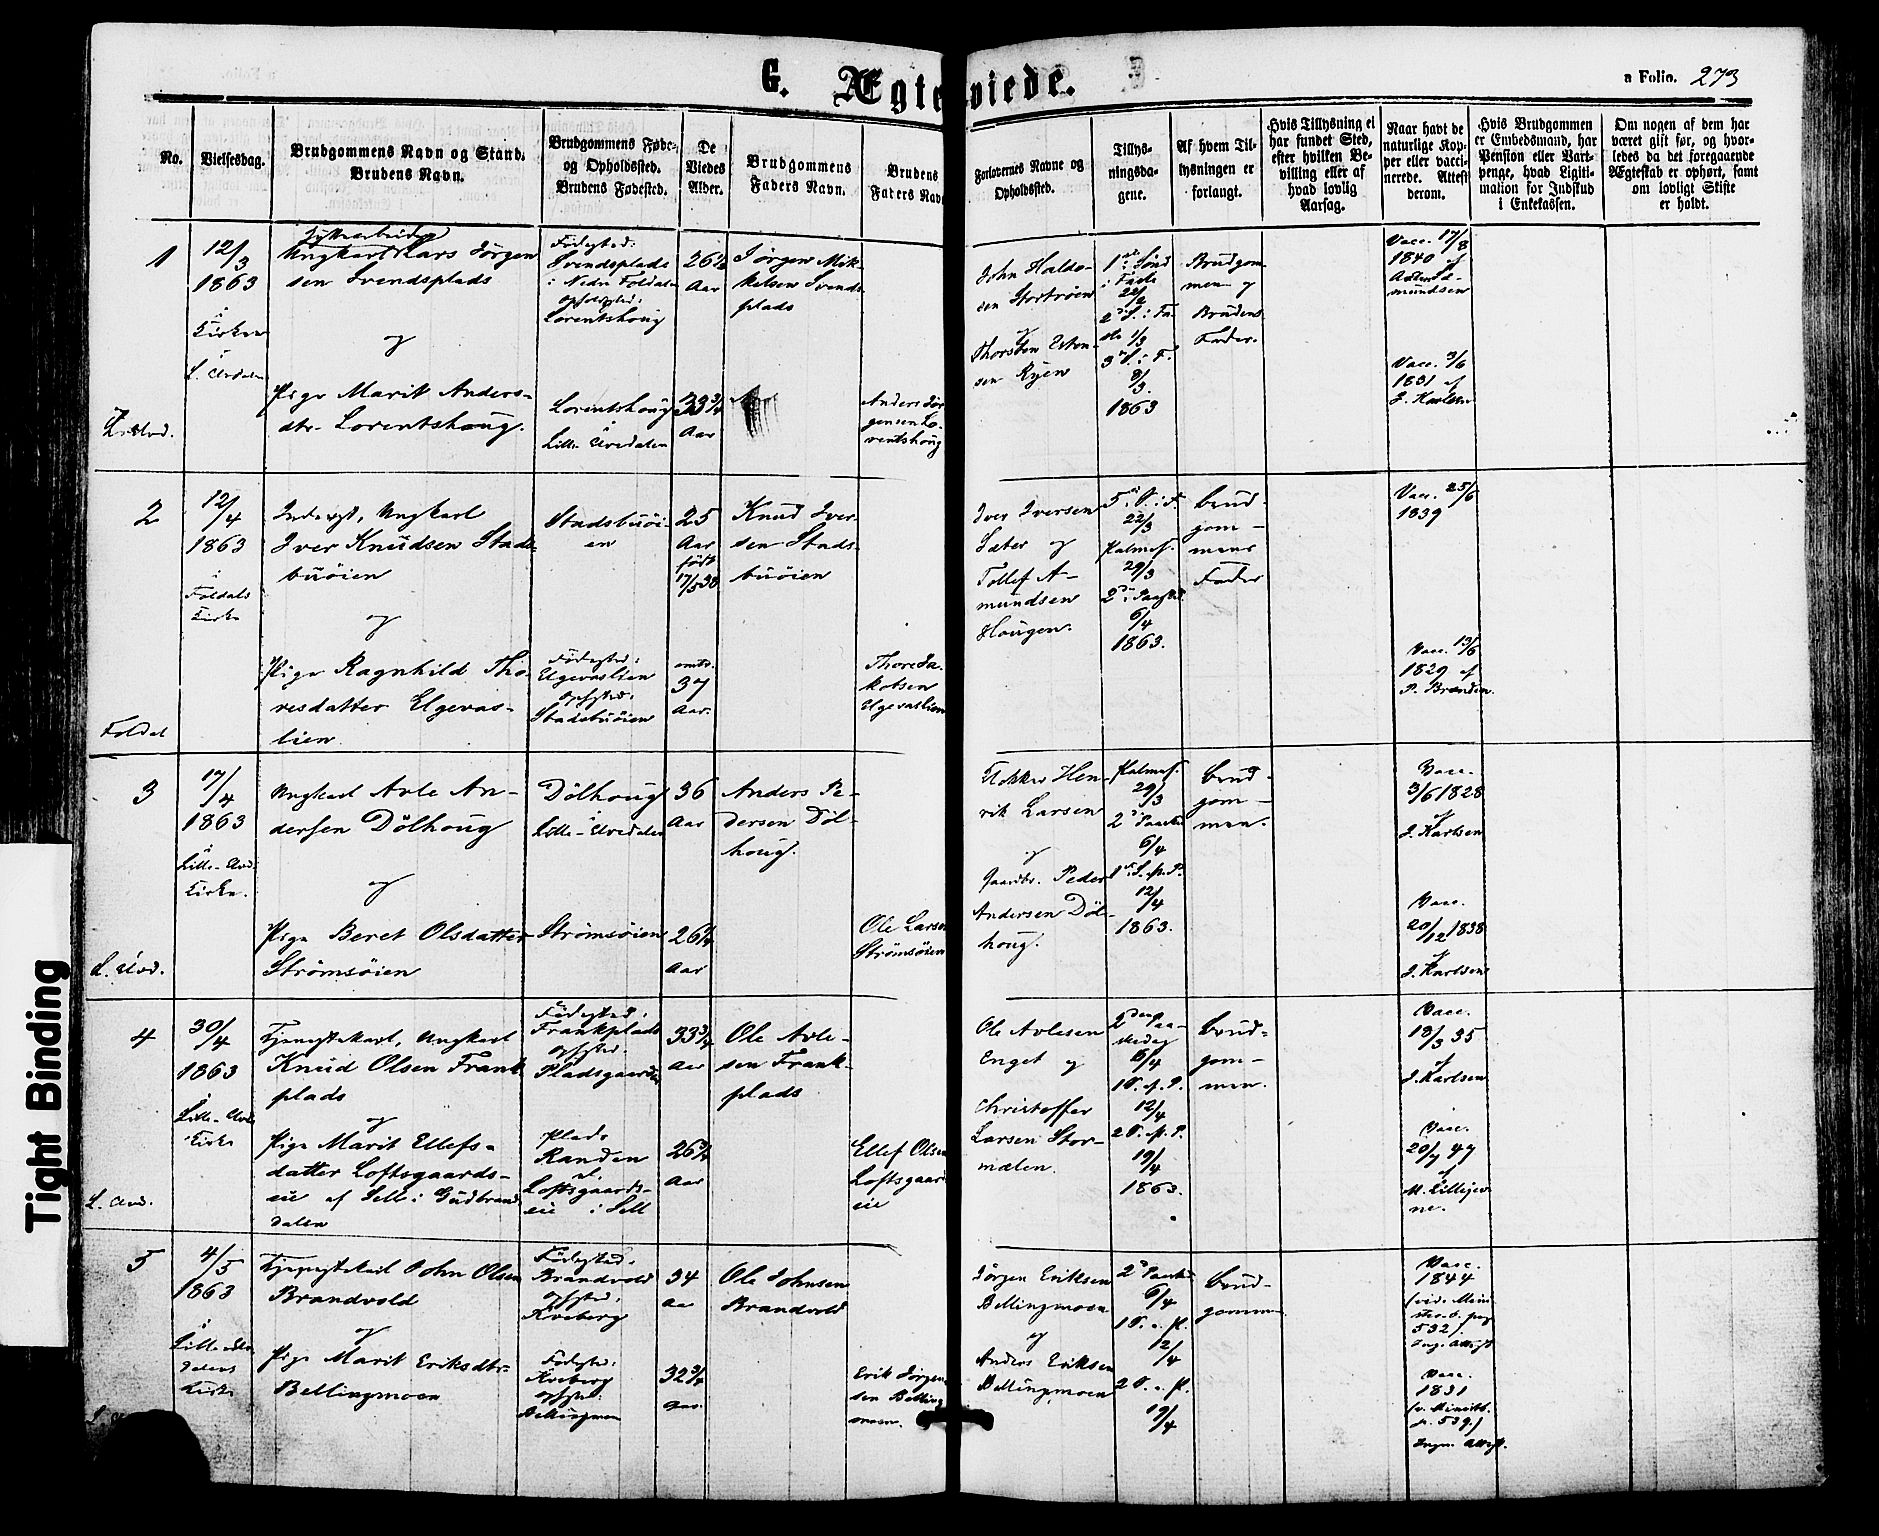 G. Ægteviede.
a Folio. 273
No.
Vielsesdag.
Brudgommens Navn og Stand.
Brudens Navn.
Brudgommens Føde-
og Opholdssted.
Brudens Fødested.
De
Viedes
Alder.
Brudgommens
Faders Navn.
Brudens
Faders Navn
Forlovernes Navne og
Opholdssted.
Tillys-
ningsda-
gene.
Af hvem Til-
lysningen er
forlangt.
Hvis Tillysning ei
har fundet Sted,
efter hvilken Be-
villing eller af
hvad lovlig
Aarsag.
Naar havt de
naturlige Kop-
per eller vacci-
nerede. Attest
derom.
Hvis Brudgommen
er Embedsmand, har
Pension eller Vart-
penge, hvad Ligiti-
mation for Indskud
i Enkekassen.
Om nogen af dem har
været gift før, og hvor-
ledes da det foregaaende
Ægteskab er ophørt, samt
om lovligt Skifte
er holdt.
1
12/3
1863
i
Kirken
Ungkarl Lars Jørgen
sen Svendsplads
og
Pige Marit Anders-
dtr. Lorentshoug.
Fødested:
Svendsplads
i Nedre Foldalen
Opholdssted:
Lorentshoug
Lorentshoug
i
Lille-Elvedalen
26½
Aar
33¾
Aar
Jørgen Mik-
kelsen Svends
plads
Anders Jør
gensen Lo-
rentshoug
John Haldo-
sen Stortrøen
og
Thorsten Esten-
sen Ryen
1ste Sønd
i Faste
22/2
2 S. i Fa-
ste 1/3
3 S. i F.
8/3
1863
Brudgom
men og
Brudens
Fader.
Vacc. 17/8
1840 af
Vacc. 3/6
1831 af
J. Karlsen
2
12/4
1863
i
Foldals
Kirke
Foldal
Ungkarl
Iver Knudsen Stads-
buøien
og
Pige Ragnhild Tho-
resdatter Elgevas-
lien
Stadsbuøi-
en
Fødested:
Elgevaslien
Opholdssted:
Stadsbuøien
25
Aar
født
17/5 38
omtr.
37
Aar.
Knud Iver-
sen Stads-
buøien
Thore Ja-
kobsen
Elgevaslien
Iver Iversen
Sæter og
Tollef A-
mundsen
Hougen.
5 S. i F.
22/3
Palmes.
29/3
2 Paaskd.
6/4
1863.
Brud-
gom-
mens
Fader
Vacc. 25/6
1839
Vacc. 13/6
1829 af
P. Brænden
3
17/4
1863
i
Lille-Elvd.
Kirke.
L. Elvd.
Ungkarl Avle An-
dersen Dölhoug
og
Pige Beret Olsdatter
Strömsöien
Dölhoug
i
Lille-Elvedalen
Strömsöien
36
Aar
26¼
Aar
Anders Pe-
dersen Döl-
houg.
Ole Larsen
Strömsöien
Kokker Hen-
rik Larsen
og
Gaardbr. Peder
Andersen Döl-
houg.
Palmes.
29/3
2 Paaskd
6/4
1 S. p. P.
12/4
1863.
Brud-
gom-
men.
Vacc.
3/6 1828
af
J. Karlsen
Vacc.
20/12 1838
af
J. Karlsen
4
30/4
1863
i
Lille-Elvd.
Kirke
L. Elvd.
Tjenestekarl, Ungkarl
Knud Olsen Frank-
plads
og
Pige Marit Ellefs-
datter Loftsgaards-
eie af Sell i Gudbrands
dalen
Fødested:
Frankplads
Opholdssted:
Pladsgaarden
Plads
Randen
Loftsgaards-
eie i Sell
33¾
Aar
26¾
Aar
Ole Avle-
sen Frank-
plads
Ellef Olsen
Loftsgaards
eie
Ole Avlesen
Enget og
Christoffer
Larsen Stor-
mælen.
2den Paa-
skedag
6/4
1 S. p. P.
12/4
2 S. p. P.
19/4
1863.
Brud-
gom-
men.
Vacc.
18/3 35
af
J. Karlsen
Vacc.
20/7 47
af
5
4/5
1863
i
Kirke
Tjenestekarl John Olsen
Brandvold
og
Pige Marit Eriksdtr.
Bellingmoen
Fødested:
Brandvold
Opholdssted:
Kveberg
Fødested:
Kveberg
Opholdssted:
Bellingmoen
34
Aar
32¾
Aar
Ole Johnsen
Brandvold
Erik Jørgen
sen Belling
moen.
Jørgen Eriksen
Bellingmoen
og
Anders Eriksen
Bellingmoen
2 Paaskd
6/4
1 S. p. P.
12/4
2 S. p. P.
19/4
Brud-
gommen
Vacc.
1844
532)
Vacc.
1831
Tight Binding